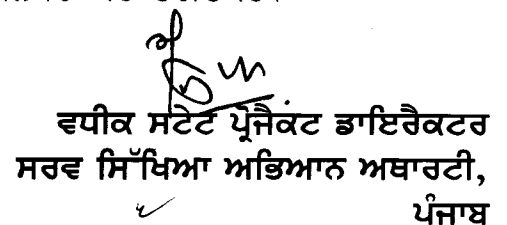 ਵਧੀਕ ਸਟੇਟ ਪ੍ਰੋਜੈਕਟ ਡਾਇਰੈਕਟਰ
ਸਰਵ ਸਿੱਖਿਆ ਅਭਿਆਨ ਅਥਾਰਟੀ,
ਪੰਜਾਬ